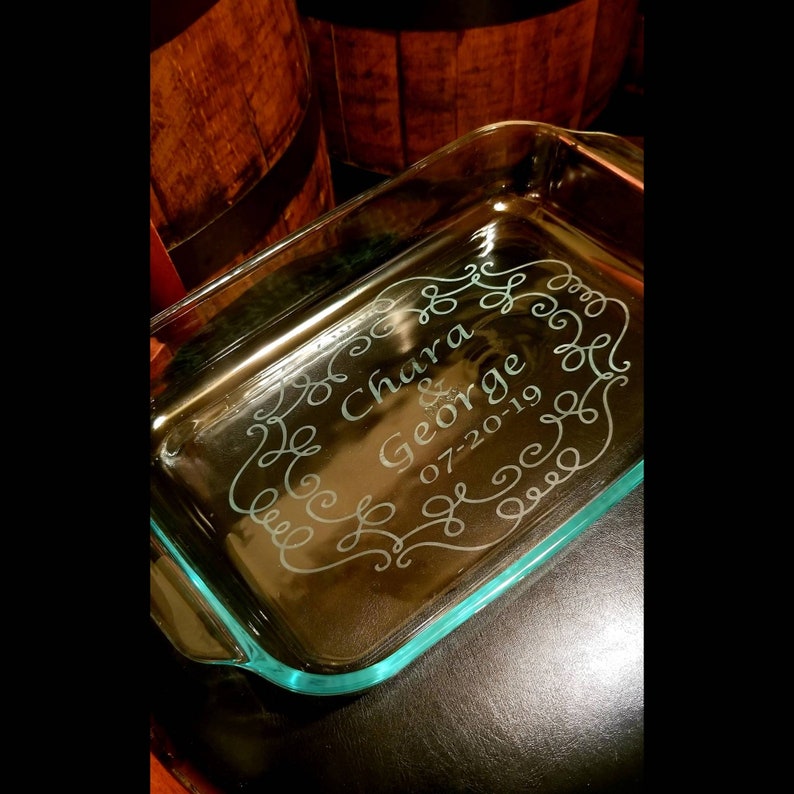 Chara
&
George
07-20-19